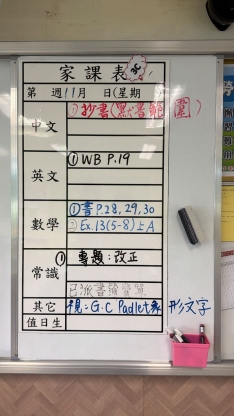 家課表
第 週11月 日(星期
中文 ①抄書(默書範圍)
英文 ①WB P.19
數學 ①書P.28,29,30
②Ex.13(5-8)上A
常識 ①專題:改正
已派書
其它 視:G.C Padlet 形文字
值日生